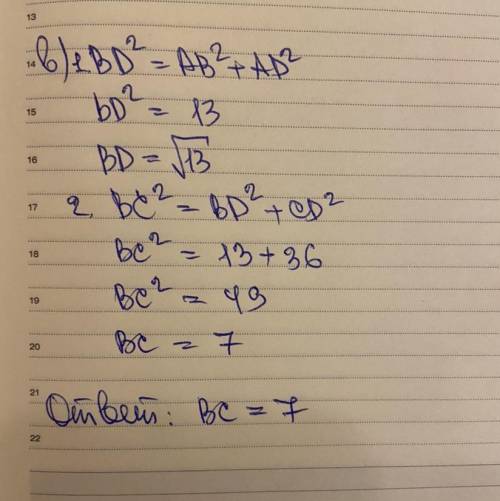 13
14 в) 1 BD² = AB² + AD²
15 bD² = 13
16 BD = √13
17 2. BC² = BD² + CD²
18 BC² = 13 + 36
19 BC² = 49
20 BC = 7
21 Ответ: BC = 7
22